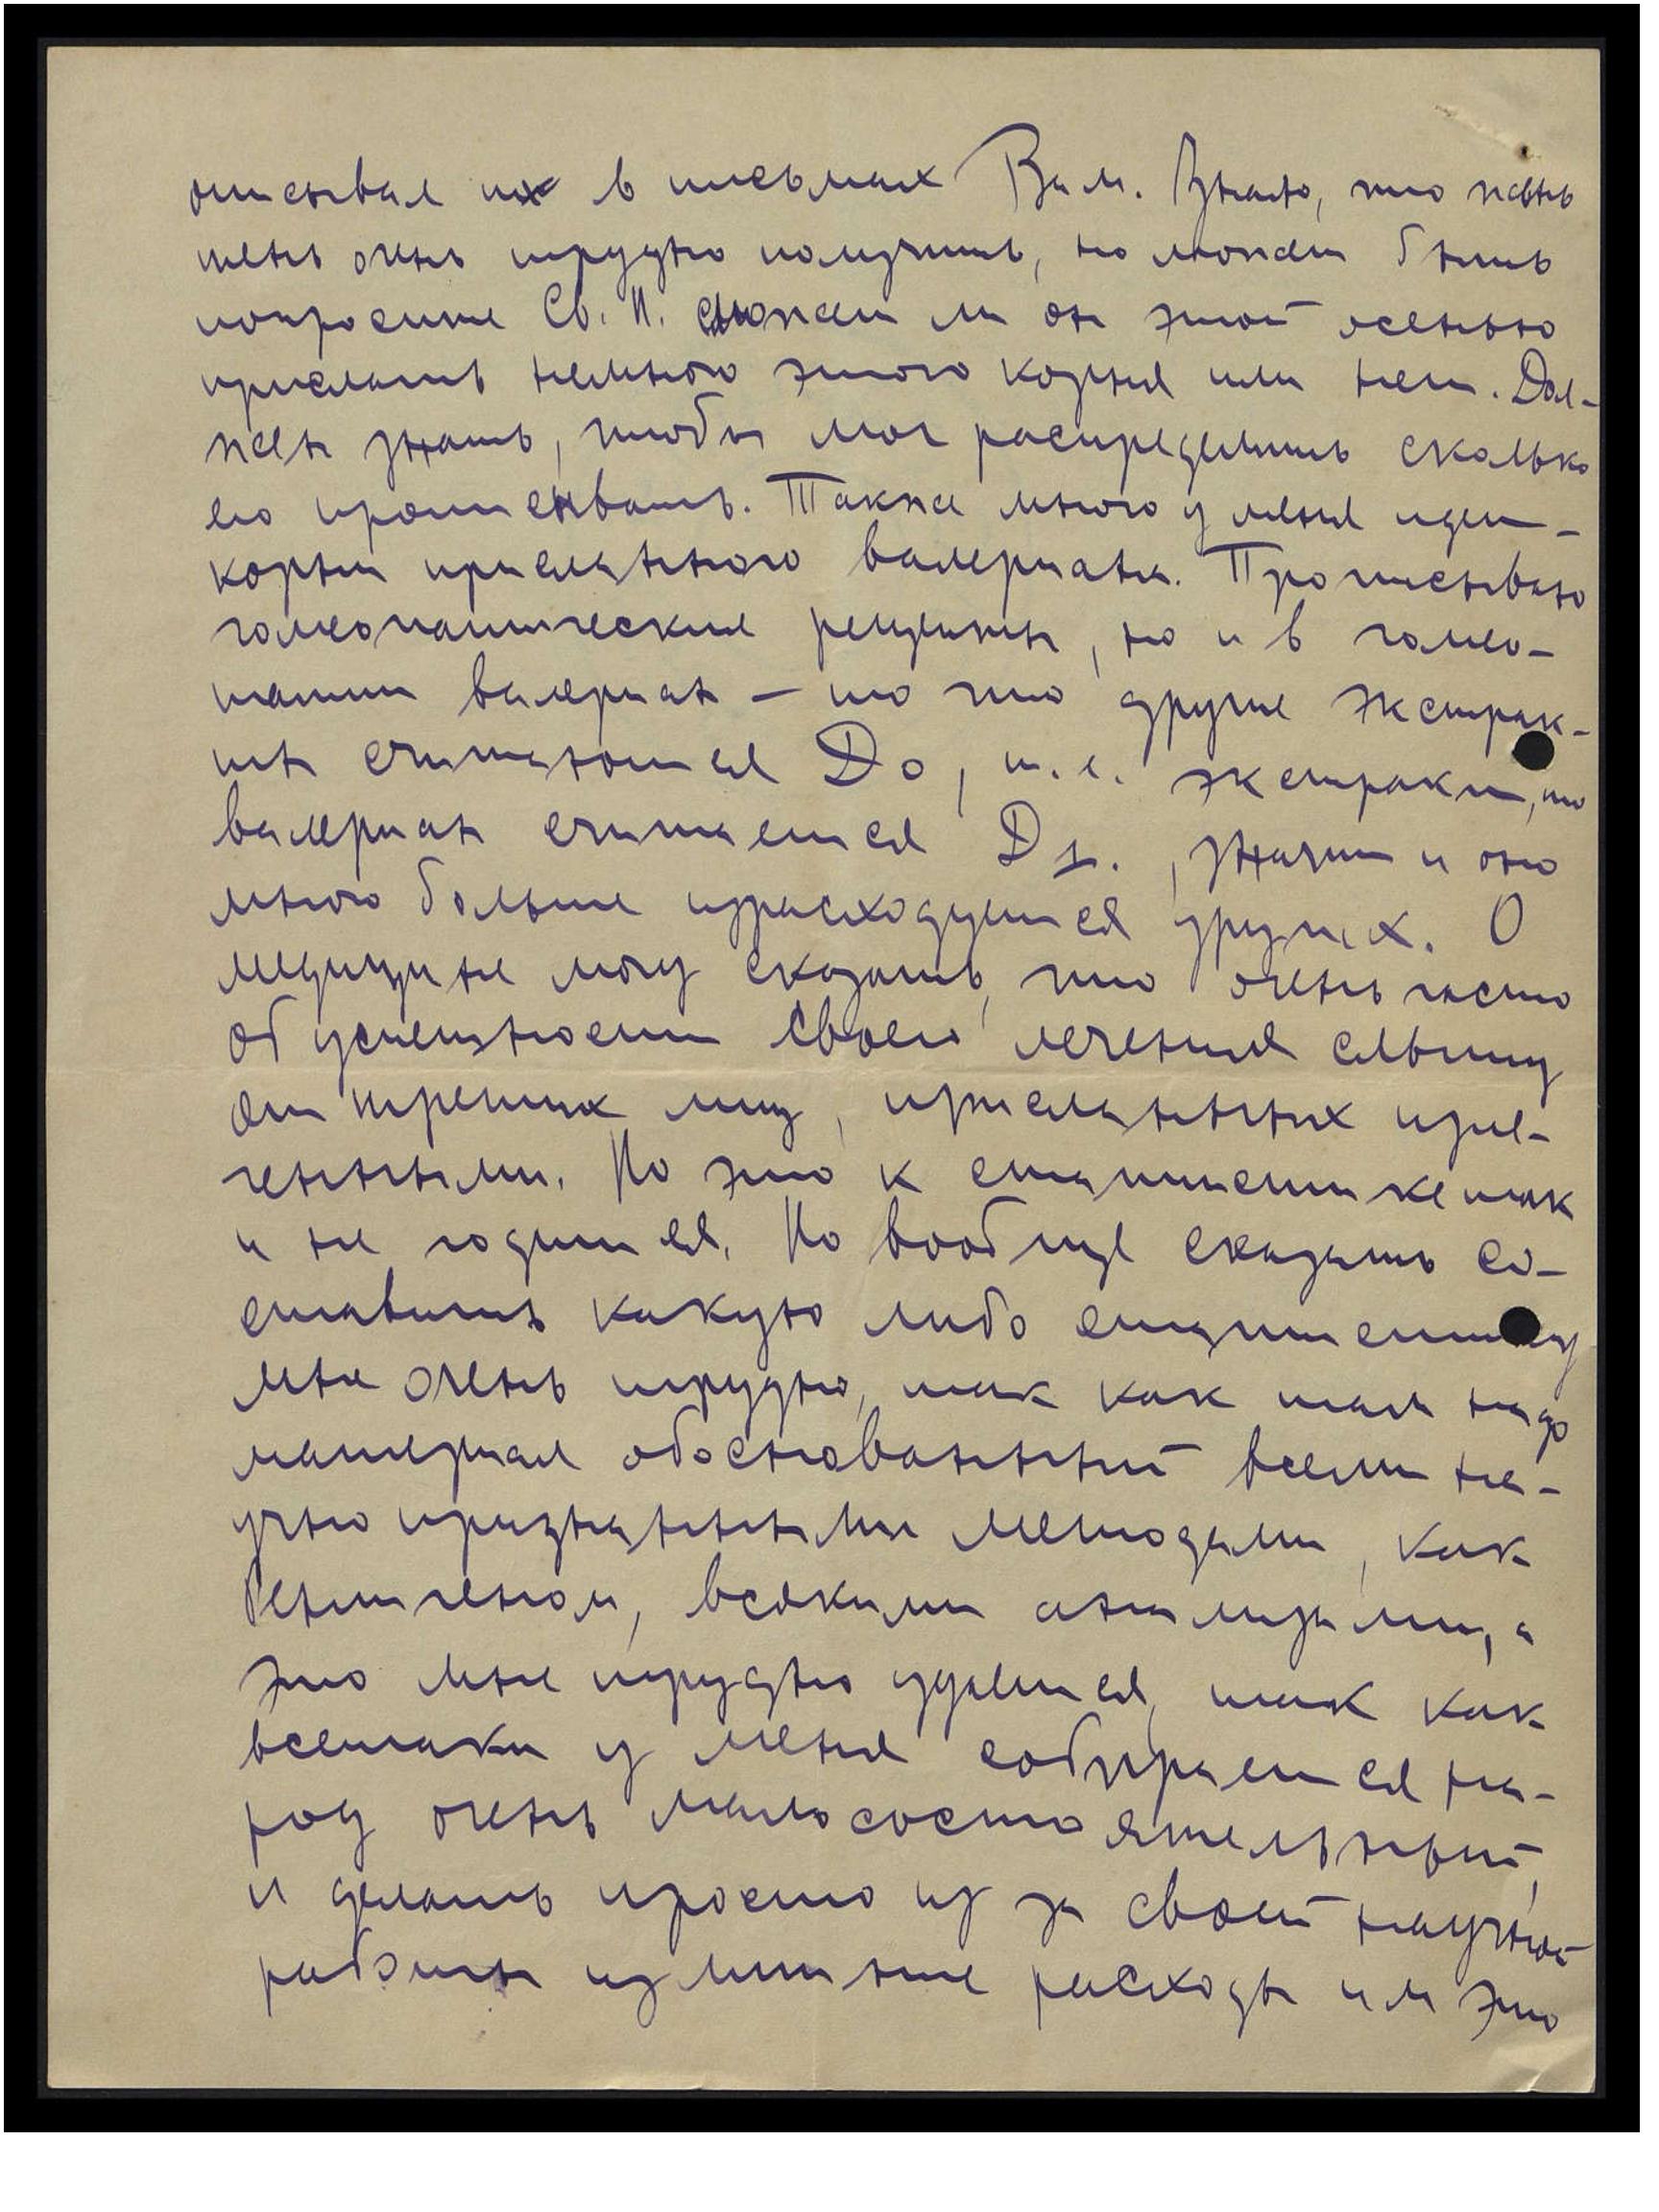 описывал их в письмах Вам. Знаю, что жень
шень очень трудно получить, но может быть
попросите Св. Н. сможет ли он этой осенью
прислать немного этого корня или нет. Дол-
жен знать, чтобы мог распределить сколько
его прописывать. Также много у меня идет-
корни присланного валериана. Прописываю
гомеопатические рецепты, но и в гомео-
патии валериан – то что другие экстрак-
ты считаются Do, т.е. экстракт, то
валериан считается D1., значит и он
много больше израсходуется других. О
медицине могу сказать, что очень часто
об успешности своего лечения слышу
от третих лиц, присланных изле-
ченными. Но это к статистике так
и не годится. Но вообще сказать со-
ставить какую либо статистику
мне очень трудно, так как там надо
материал обоснованный всеми на-
учно признанными методами, как
Рентгеном, всякими анализами, а
это мне трудно удается, так как
всетаки у меня собирается на-
род очень малосостоятельный,
и делать просто из за своей научной
работы излишние расходы им это